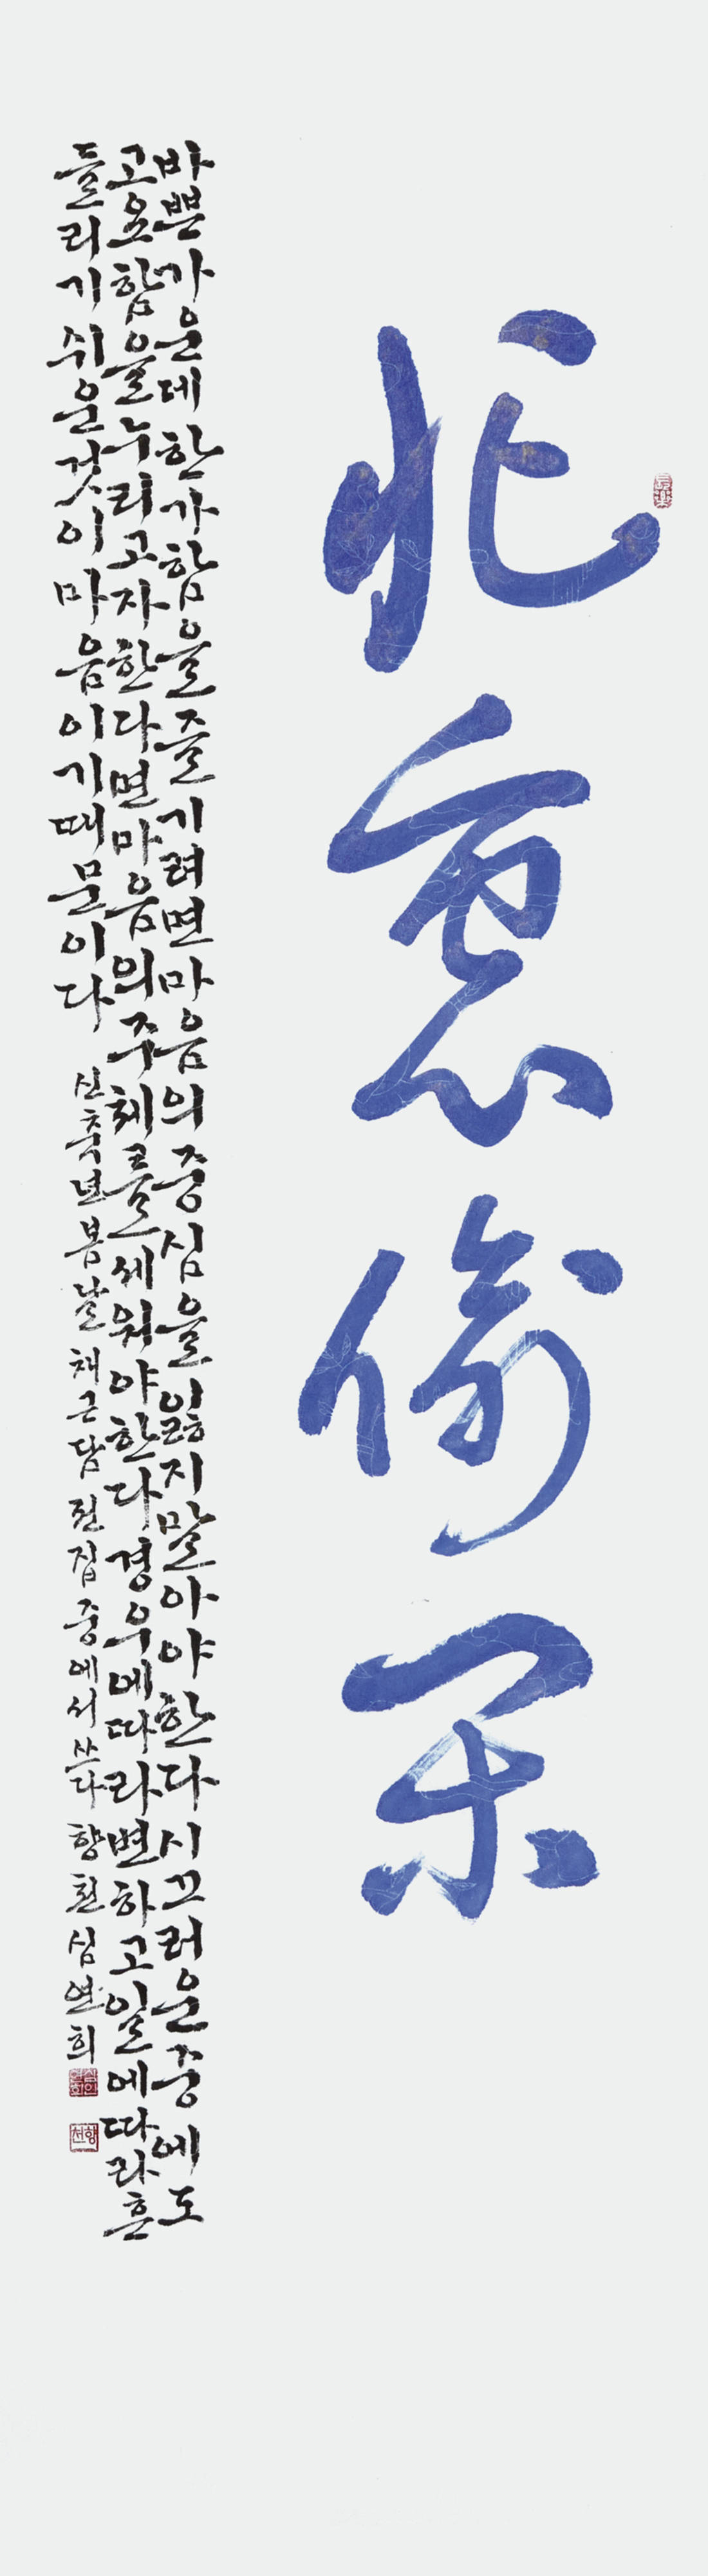 忙裏偸閑
바쁜가운데한가함을즐기려면마음의중심을잃지말아야한다시끄러운중에도
고요함을누리고자한다면마음의주체를세워야한다경우에따라변하고일에따라흔
들리기쉬운것이마음이기때문이다 신축년봄날채근담전집중에서쓰다향천심연희